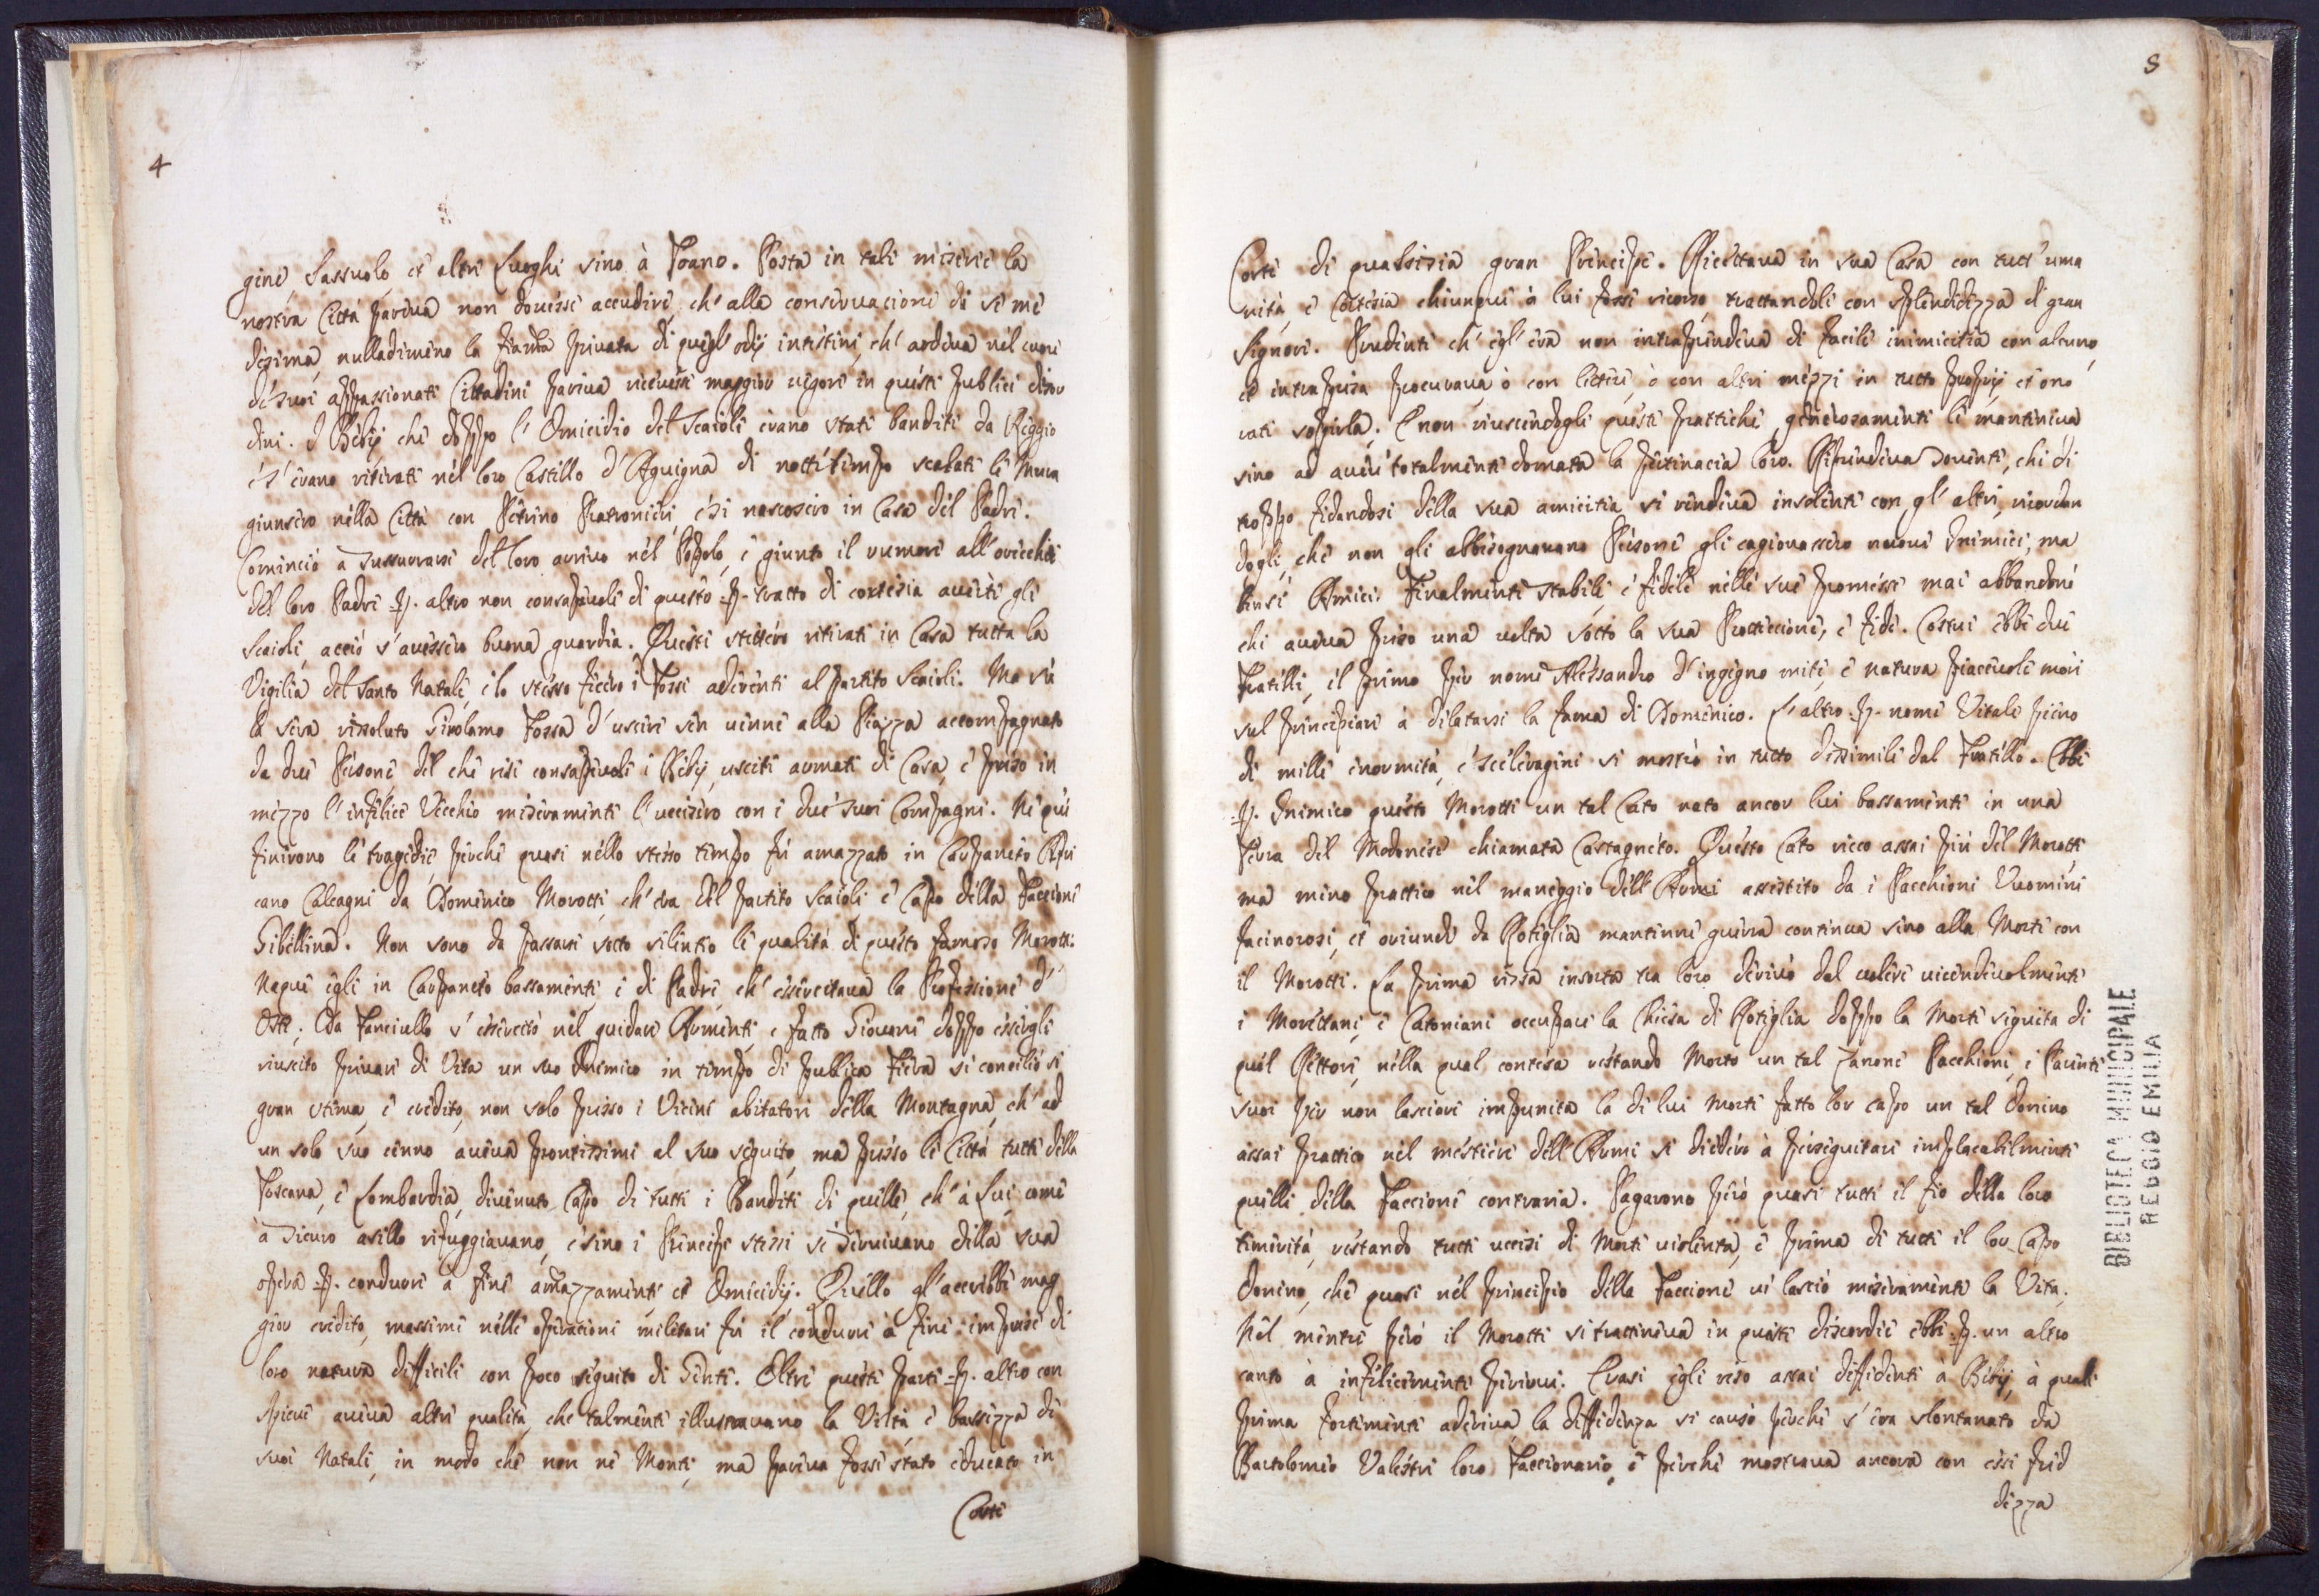 4
gine, Sassuolo, et altri Luoghi sino à Toano. Posta in tali miserie la
nostra Città pareva non dovesse accudire, ch' alla conservacione di se me
desima, nulladimeno la fiama privata di quegl' odij intestini, ch' ardeva nel cuore
de' suoi appassionati Cittadini pareva ricevesse maggior vigore in questi publici disor
dini. I Bebij che doppo l' Omicidio del Scaioli erano stati banditi da Reggio
e s' erano ritirati nel loro Castello d' Aguigna di nottetempo scalati le Mura
giunsero nella Città con Petrino e si nascosero in Casa del Padre.
Cominciò a sussurrarsi del loro arrivo nel Popolo, e giunto il rumore all' orecchie
del loro Padre p. altro non consapevole di questo p. tratto di cortesia avertì gli
Scaioli, acciò s' avessero buona guardia. Questi stettero ritirati in Casa tutta la
Vigilia del Santo Natale, e lo stesso fecero i Fossi aderenti al partito Scaioli. Ma sù
la sera risoluto Girolamo Fossa d' uscire sen venne alla Piazza accompagnato
da due Persone, del che resi consapevoli i Bebij, usciti armati di Casa, e preso in
mezzo l' infelice Vecchio miseramente l' uccisero con i due suoi Compagni. Ne quì
finirono le tragedie, perche quasi nello stesso tempo fù amazzato in Carpaneto Apri
cano Calcagni da Domenico Morotti, ch' era del partito Scaioli, e Capo della Faccione
Gibellina. Non sono da passarsi sotto silentio le qualità di questo famoso Morotti.
Naque egli in Carpaneto bassamente, e di Padre, ch' essercitava la Professione d'
Oste; Da Fanciullo s' essercitò nel guidare Armenti, e fatto Giovane doppo essergli
riuscito privare di Vita un suo Inemico in tempo di publica Fiera si conciliò sì
gran stima, e credito, non solo presso i Vicini abitatori della Montagna, ch' ad
un solo suo cenno aveva prontissimi al suo seguito, ma presso le Città tutte della
Toscana, e Lombardia, divenuto Capo di tutti i Banditi di quelle, ch' à Lui, come
à sicuro asillo rifuggiavano, e sino i Principi stessi si servivano della sua
opera p. condure à fine amazzamenti et Omicidij. Quello gl' accrebbe mag
gior credito, massime nelle operacioni militari fù il condure à fine imprese di
loro natura difficili con poco seguito di Gente. Oltre queste parti p. altro con
spicue aveva altre qualità, che talmente illustravano la Viltà, e bassezza di
suoi Natali, in modo che non ne Monti, ma pareva fosse stato educato in
Corte
S
Corte di qualsisia gran Principe. Ricettava in sua Casa con tutt' uma
nità, e Cortesia chiunque à lui fosse ricorso, trattandoli con splendidezza di gran
Signore. Prudente ch' egl' era non intraprendeva di facile inimicitia con alcuno,
et intrapresa procurava ò con lettere, ò con altri mezzi in tutto proprij et ono
rati sopirla. E non riuscendogli queste prattiche, generosamente le manteneva
sino ad aver totalmente domata la pertinacia loro. Riprendeva sovente, chi di
troppo fidandosi della sua amicitia si rendeva insolente con gl' altri, ricordan
dogli, che non gli abbisognavano Persone gli cagionassero nuovi Inimici, ma
bensì Amici. Finalmente stabile, e fidele nelle sue promesse mai abbandonò
chi aveva preso una volta sotto la sua Proteccione, e fide. Costui ebbe due
Fratelli, il primo per nome Alessandro d' ingegno mite, e natura piacevole morì
sul principiare à dilatarsi la fama di Domenico. L' altro p. nome Vitale pieno
di mille enormità, e sceleragini si mostrò in tutto dissimile dal Fratello. Ebbe
p. Inimico questo Morotti un tal Cato nato ancor lui bassamente in una
Terra del Modonese chiamata Castagneto. Questo Cato ricco assai più del Morotti
ma meno prattico nel maneggio dell' Armi assistito da i Pacchioni Uuomini
facinorosi, et oriundi da Rotiglia mantenne guerra continua sino alla Morte con
il Morotti. La prima rissa insorta tra loro derivò dal volere vicendevolmente
i Morettani, e Catoniani occupare la Chiesa di Rotiglia doppo la Morte seguita di
quel Rettore, nella qual contesa restando Morto un tal Zanone Pacchioni, i Parenti
suoi per non lasciare impunita la di lui Morte fatto lor capo un tal Donino
assai prattico nel mestiere dell' Armi si diedero à perseguitare implacabilmente
quelli della Faccione contraria. Pagarono però quasi tutti il fio della loro
temerità, restando tutti uccisi di Morte violenta, e prima di tutti il lor Capo
Donino, che quasi nel principio della Faccione vi lasciò miseramente la Vita.
Nel mentre però il Morotti si tratteneva in queste discordie ebbe p. un altro
canto à infelicemente perire. Erasi egli reso assai diffidente à Bebij, à quali
prima fortemente aderiva, la diffidenza si causò perche s' era slontanato da
Bartolomeo Valestri loro Faccionario, e perche mostrava ancora con essi fred
dezza
BIBLIOTECA MUNICIPALE
REGGIO EMILIA